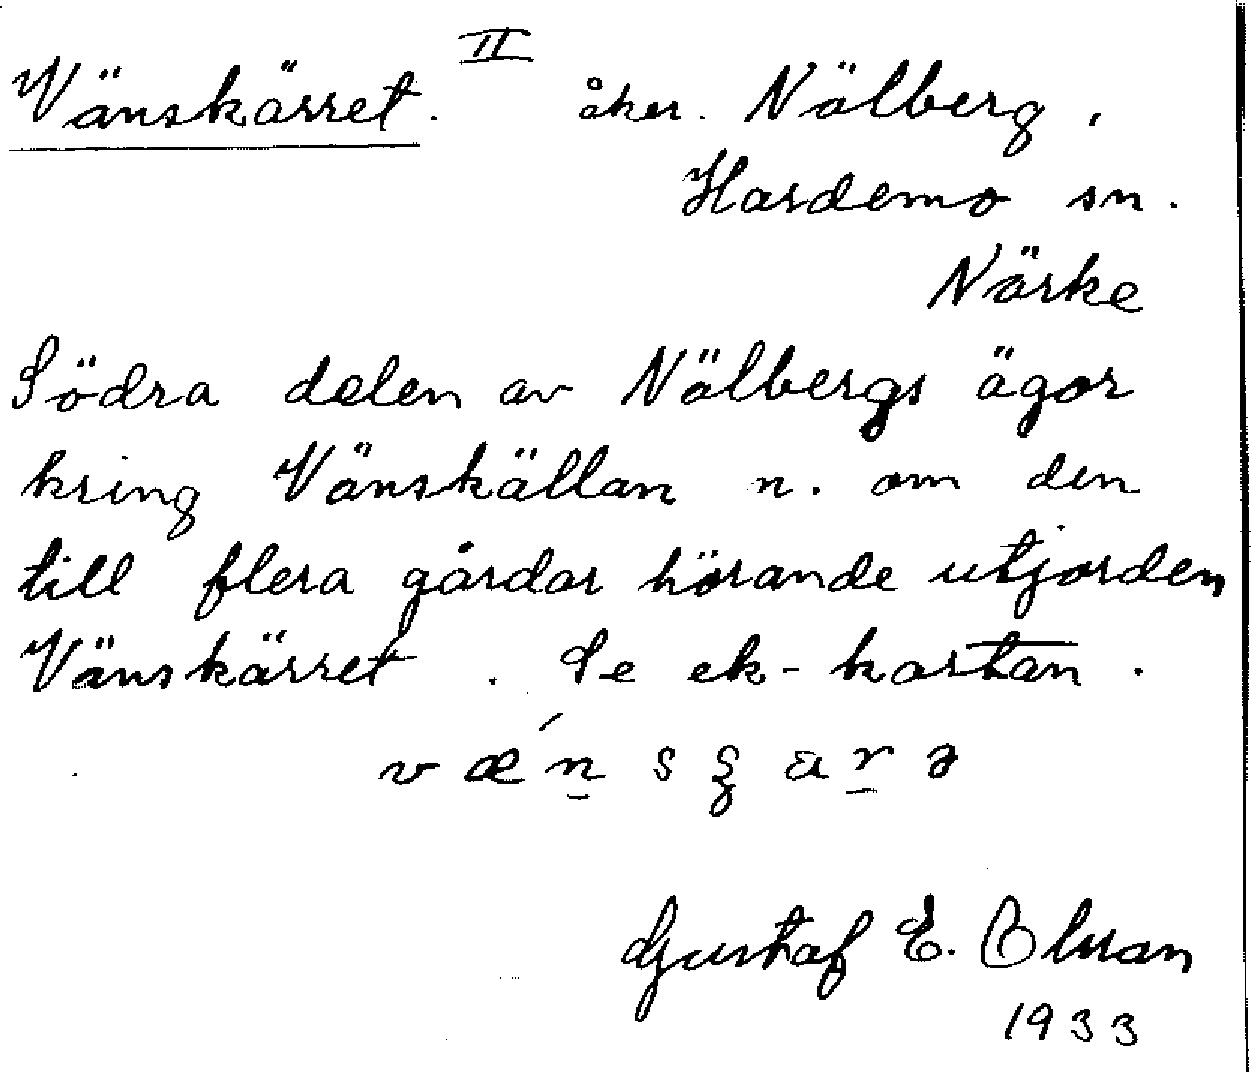 Vänskärret. II åker. Nälberg,
Hardemo sn.
Närke
Södra delen av Nälbergs ägor
kring Vänskällan n. om den
till flera gårdar hörande utjorden
Vänskärret. Se ek-kartan.
Gustaf E. Olsson
1933